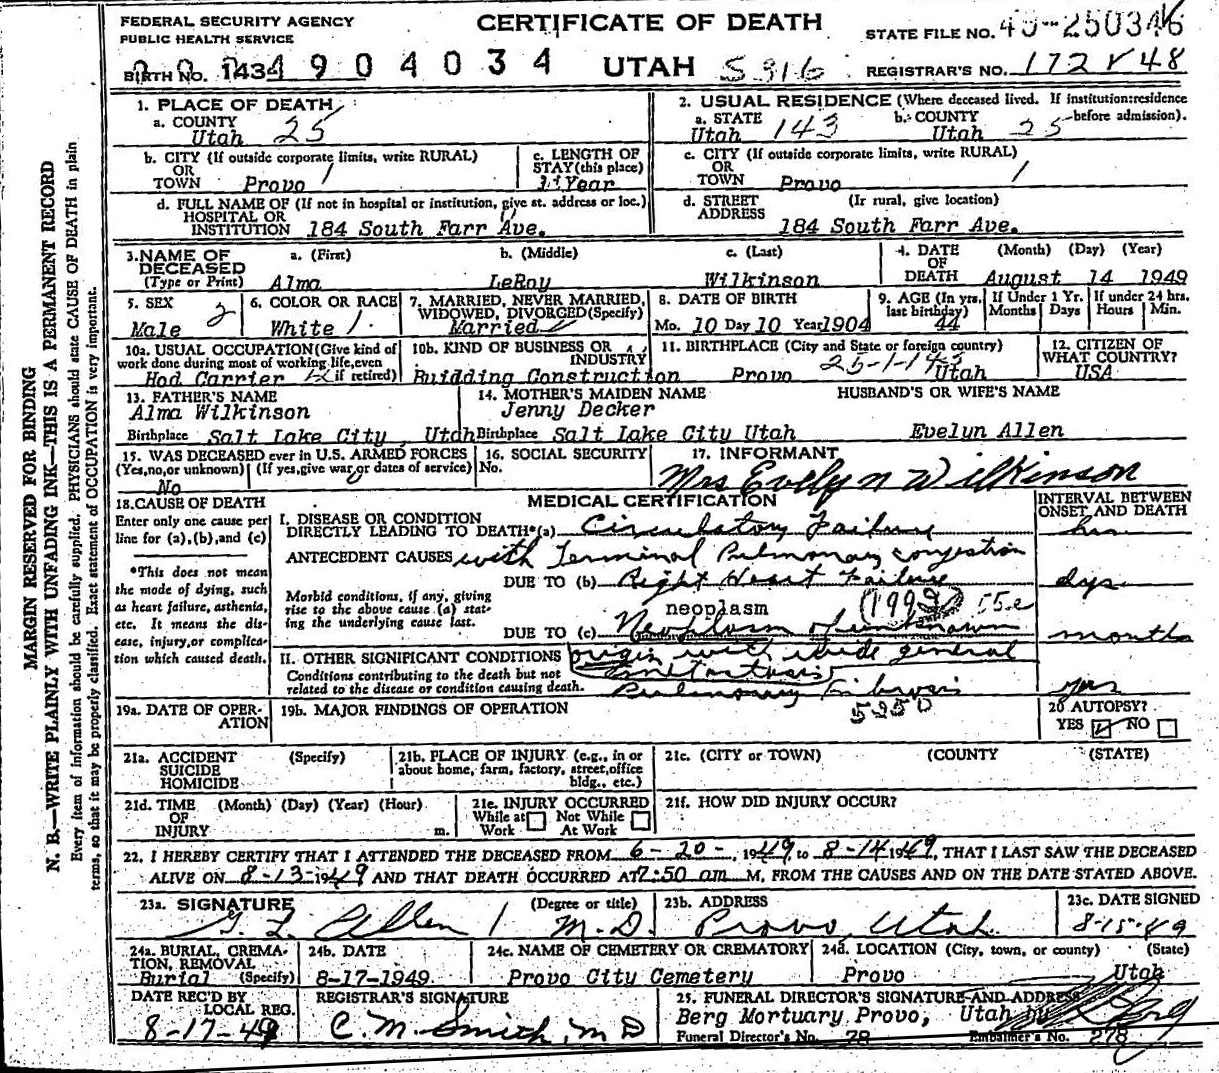 FEDERAL SECURITY AGENCY
PUBLIC HEALTH SERVICE
CERTIFICATE OF DEATH
STATE FILE NO. 49-250346
BIRTH NO. 1434904034
UTAH S316
REGISTRAR'S NO. 172 48
1. PLACE OF DEATH
a. COUNTY
Utah 25
2. USUAL RESIDENCE (Where deceased lived. If institution:residence before admission).
a. STATE
Utah 143
b. COUNTY
Utah 25
b. CITY (If outside corporate limits, write RURAL)
OR
TOWN Provo 1
c. LENGTH OF
STAY(this place)
Year
c. CITY (If outside corporate limits, write RURAL)
OR
TOWN Provo 1
d. FULL NAME OF (If not in hospital or institution, give st. address or loc.)
HOSPITAL OR
INSTITUTION 184 South Farr Ave.
d. STREET (Ir rural, give location)
ADDRESS
184 South Farr Ave.
3. NAME OF
DECEASED
(Type or Print)
a. (First)
Alma
b. (Middle)
LeRoy
c. (Last)
Wilkinson
4. DATE
OF
DEATH
(Month) (Day) (Year)
August 14 1949
5. SEX
Male 2
6. COLOR OR RACE
White 1
7. MARRIED, NEVER MARRIED,
WIDOWED, DIVORCED(Specify)
Married
8. DATE OF BIRTH
Mo. 10 Day 10 Year 1904
9. AGE (In yrs.
last birthday)
44
If Under 1 Yr.
Months Days
If under 24 hrs.
Hours Min.
10a. USUAL OCCUPATION(Give kind of
work done during most of working life,even
if retired)
Hod Carrier
10b. KIND OF BUSINESS OR
INDUSTRY
Buidding Construction
11. BIRTHPLACE (City and State or foreign country)
25-1-143
Provo Utah
12. CITIZEN OF
WHAT COUNTRY?
USA
13. FATHER'S NAME
Alma Wilkinson
Birthplace Salt Lake City, Utah
14. MOTHER'S MAIDEN NAME
Jenny Decker
Birthplace Salt Lake City Utah
HUSBAND'S OR WIFE'S NAME
Evelyn Allen
15. WAS DECEASED ever in U.S. ARMED FORCES
(Yes,no,or unknown) (If yes,give war or dates of service)
No
16. SOCIAL SECURITY
No.
17. INFORMANT
Mrs Evelyn Wilkinson
18. CAUSE OF DEATH
Enter only one cause per
line for (a),(b),and (c)
*This does not mean
the mode of dying, such
as heart failure, asthenia,
etc. It means the dis-
ease, injury,or complica-
tion which caused death.
MEDICAL CERTIFICATION
INTERVAL BETWEEN
ONSET AND DEATH
I. DISEASE OR CONDITION
DIRECTLY LEADING TO DEATH*(a) Circulatory Failure hrs
ANTECEDENT CAUSES with Terminal Pulmonary congestion
DUE TO (b) Right Heart Failure dys
Morbid conditions, if any, giving
rise to the above cause (a) stat-
ing the underlying cause last.
neoplasm (199
DUE TO (c) Neoplasm of unknown months
II. OTHER SIGNIFICANT CONDITIONS origin with wide general
Conditions contributing to the death but not
related to the disease or condition causing death.
metastasis
Pulmonary Fibrosis yrs
19a. DATE OF OPER-
ATION
19b. MAJOR FINDINGS OF OPERATION
5250
20 AUTOPSY?
YES NO
21a. ACCIDENT
SUICIDE
HOMICIDE
(Specify)
21b. PLACE OF INJURY (e.g., in or
about home, farm, factory, street,office
bldg., etc.)
21c. (CITY or TOWN) (COUNTY (STATE)
21d. TIME (Month) (Day) (Year) (Hour)
OF
INJURY m.
21e. INJURY OCCURRED
While at Work
Not While At Work
21f. HOW DID INJURY OCCUR?
22. I HEREBY CERTIFY THAT I ATTENDED THE DECEASED FROM 6-20-, 1949, to 8-14 1949, THAT I LAST SAW THE DECEASED
ALIVE ON 8-13-1949 AND THAT DEATH OCCURRED AT 7:50 am M, FROM THE CAUSES AND ON THE DATE STATED ABOVE.
23a. SIGNATURE (Degree or title)
Allen M.D.
23b. ADDRESS
Provo, Utah
23c. DATE SIGNED
8-15-49
24a. BURIAL, CREMA-
TION, REMOVAL
Burial (Specify)
24b. DATE
8-17-1949
24c. NAME OF CEMETERY OR CREMATORY
Provo City Cemetery
24d. LOCATION (City, town, or county) (State)
Provo Utah
DATE REC'D BY
LOCAL REG.
8-17-49
REGISTRAR'S SIGNATURE
C. M. Smith, M D
25. FUNERAL DIRECTOR'S SIGNATURE AND ADDRESS
Berg Mortuary Provo, Utah by Berg
Funeral Director's No. 78 Embalmer's No. 278
MARGIN RESERVED FOR BINDING
N. B.—WRITE PLAINLY WITH UNFADING INK—THIS IS A PERMANENT RECORD
Every item of information should be carefully supplied. PHYSICIANS should state CAUSE OF DEATH in plain
terms, so that it may be properly classified. Exact statement of OCCUPATION is very important.